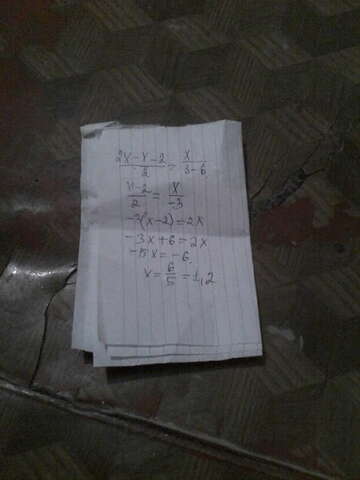 2x-x-2/2 = x/3-6
x-2/2 = x/-3
-3(x-2)=2x
-3x+6=2x
-5x=-6
x=6/5=1,2